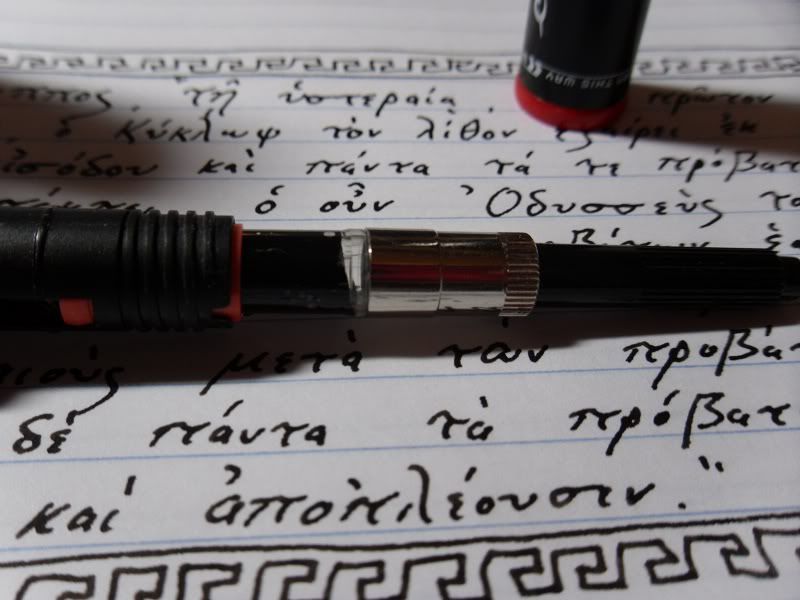 THIS WAY
τῇ ὑστεραίᾳ πρῶτον
ὁ Κύκλωψ τὸν λίθον ἐξαίρει ἐκ
καὶ πάντα τά τε πρόβατ
ὁ οὖν Ὀδυσσεὺς
μετὰ τῶν προβά
δὲ πάντα τὰ πρόβατ
καὶ ἀποπλέουσιν."